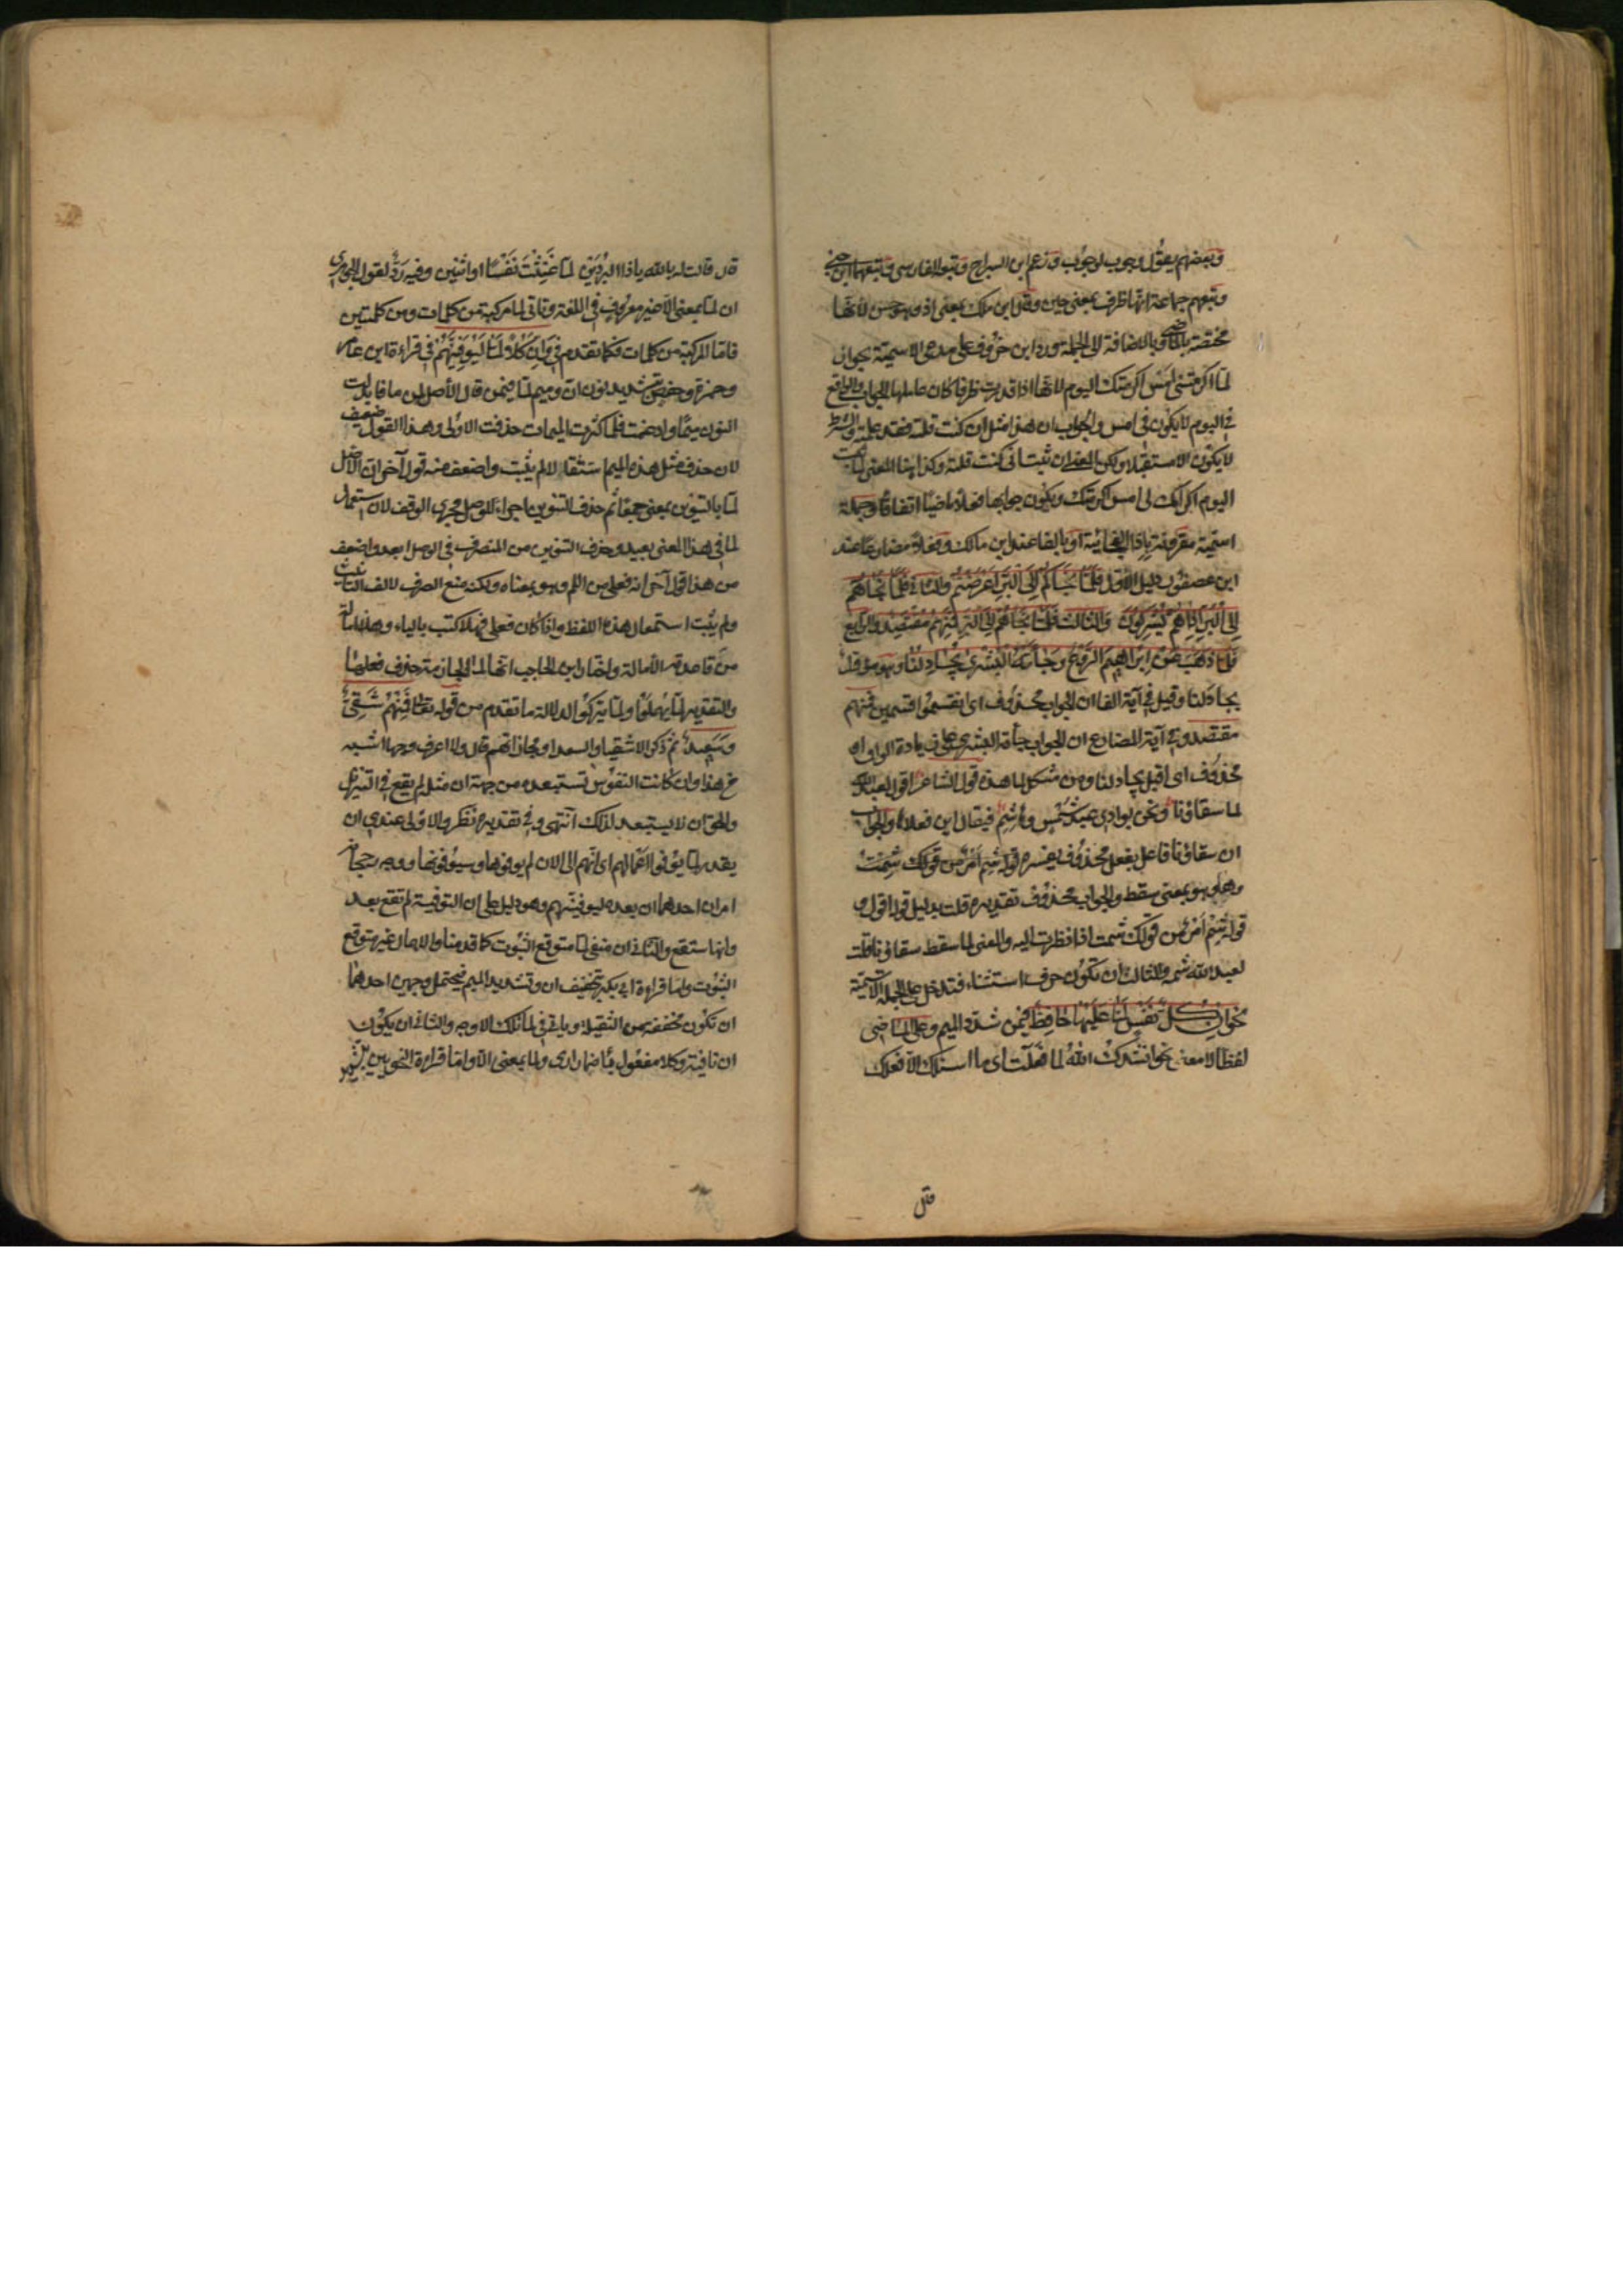 وبعضهم يقول وجوب لوجوب وزعم ابن السراج وتبعه الفارسي وتبعهما ابن جني
وتبعهم جماعة انها ظرف بمعنى حين وقال ابن ملك بمعنى اذ وهو حسن لانها
مختصة بالماضي وبالاضافة الى الجملة ورد ابن خروف على مدعي الاسمية بجواز
لما اكرمتني امس اكرمتك اليوم لانها اذا قدرت ظرفا كان عاملها الجواب والواقع
في اليوم لا يكون في امس والجواب ان هذا مثل ان كنت قلته فقد علمته والشرط
لا يكون الا مستقبلا ولكن المعنى ان ثبت اني كنت قلته وكذا هنا المعنى لما ثبت
اليوم اكرامك لي امس اكرمتك ويكون جوابها فعلا ماضيا اتفاقا وجملة
اسمية مقرونة باذا الفجائية او بالفا عند ابن مالك وفعلا مضارعا عند
ابن عصفور دليل الاول فلما نجاكم الى البر اعرضتم والثاني فلما نجاهم
الى البر اذا هم يشركون والثالث فلما نجاهم الى البر فمنهم مقتصد والرابع
فلما ذهب عن ابراهيم الروع وجاءته البشرى يجادلنا وهو مؤول
بجادلنا وقيل في آية الفا ان الجواب محذوف اى انقسموا قسمين فمنهم
مقتصد وفي آية المضارع ان الجواب جاءته البشرى على زيادة الواو او
محذوف اى اقبل يجادلنا ومن مشكل لما هذه قول الشاعر اقول لعبد الله
لما سقاؤنا ونحن بوادي عبد شمس وهاشم فيقال اين فعلاها والجواب
ان سقاؤنا فاعل بفعل محذوف يفسره قوله شم امر من قولك شمت
وهاو هو بمعنى سقط والجواب محذوف تقديره قلت بدليل قوله اقول و
قوله شم امر من قولك شمت اذا نظرت اليه والمعنى لما سقط سقاؤنا قلت
لعبد الله شمه والثالث ان تكون حرف استثناء فتدخل على الجملة الاسمية
نحو ان كل نفس لما عليها حافظ فيمن شدد الميم وعلى الماضي
لفظا لا معنى نحو انشدك الله لما فعلت اى ما اسئلك الا فعلك
قال
قال قالت له بالله ياذا البردين لما غنثت نفسا او اثنين وفيه رد لقول الجوهري
ان لما بمعنى الا غير معروف في اللغة وتاتي لما مركبة من كلمات ومن كلمتين
فاما المركبة من كلمات فكما تقدم في وان كلا لما ليوفينهم في قراءة ابن عامر
وحمزة وحفص بتشديد نون ان وميم لما فيمن قال الأصل لمن ما فابدلت
النون ميما وادغمت فلما كثرت الميمات حذفت الاولى وهذا القول ضعيف
لان حذف مثل هذه الميم استثقالا لم يثبت واضعف منه قول آخر ان الاصل
لما بالتنوين بمعنى جمعا ثم حذف التنوين اجراء للوصل مجرى الوقف لان استعمال
لما في هذا المعنى بعيد وحذف التنوين من المنصرف في الوصل ابعد واضعف
من هذا قول آخر انه فعلى من اللم وهو بمعناه ولكنه منع الصرف لالف التانيث
ولم يثبت استعمال هذه اللفظة واذا كان فعلى فهلا كتب بالياء وهلا اماله
من قاعدته الأمالة واختار ابن الحاجب انها لما الجازمة حذف فعلها
والتقدير لما يهملوا ولما يتركوا لدلالة ما تقدم من قوله تعالى فمنهم شقي
وسعيد ثم ذكر الاشقيا والسعدا ومجازاتهم قال ولا اعرف وجها اشبه
من هذا وان كانت النفوس تستبعده من جهة ان مثله لم يقع في التنزيل
والحق ان لا يستبعد لذلك انتهى وفي تقديره نظر والاولى عندي ان
يقدر لما يوفوا اعمالهم اى انهم الى الان لم يوفوها وسيوفونها ووجه رجحانه
امران احدهما ان بعده ليوفينهم وهو دليل على ان التوفية لم تقع بعد
وانها ستقع والثاني ان منفي لما متوقع الثبوت كما قدمنا والاهمال غير متوقع
الثبوت واما قراءة ابي بكر بتخفيف ان وتشديد الميم فيحتمل وجهين احدهما
ان تكون مخففة من الثقيلة وياتي في لما تلك الاوجه والثاني ان يكون
ان نافية وكلا مفعول باضمار ارى ولما بمعنى الا واما قراءة النحويين بتشديد